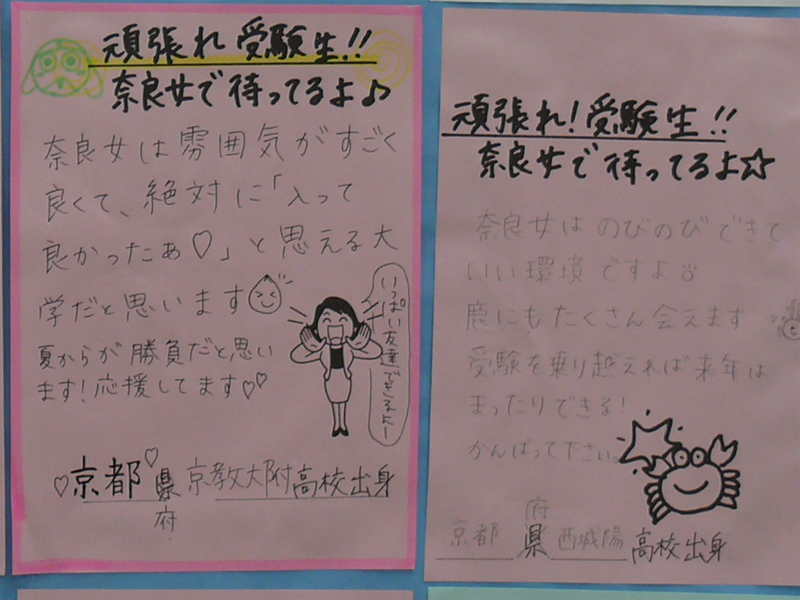 頑張れ受験生!!
奈良女で待ってるよ♪
奈良女は雰囲気がすごく
良くて、絶対に「入って
良かったぁ♡」と思える大
学だと思います
夏からが勝負だと思い
ます!応援してます♡♡
いっぱい友達できるよー
♡京都♡県府 京教大附高校出身
頑張れ!受験生!!
奈良女で待ってるよ☆
奈良女はのびのびできて
いい環境ですよ
鹿にもたくさん会えます
受験を乗り越えれば来年は
まったりできる!
がんばって下さい。
京都府県 西城陽高校出身